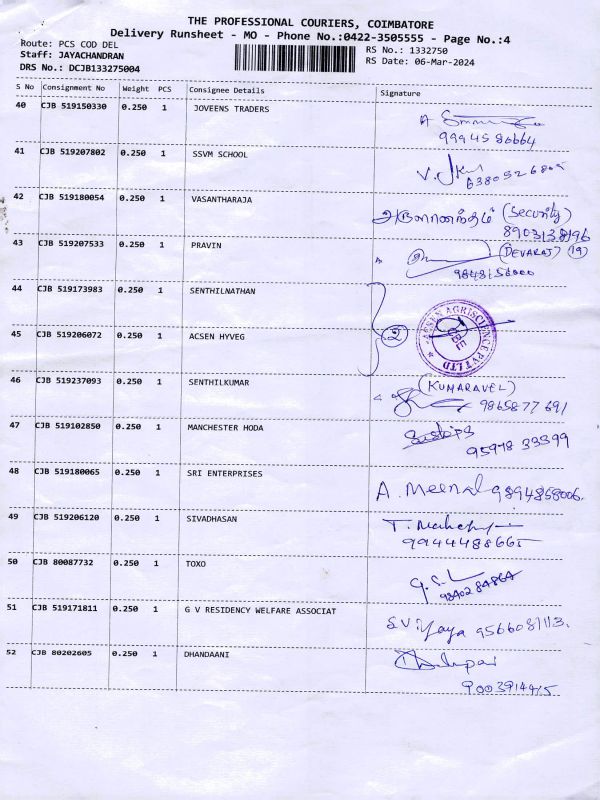 THE PROFESSIONAL COURIERS, COIMBATORE
Delivery Runsheet - MO - Phone No.:0422-3505555 - Page No.:4
Route: PCS COD DEL
Staff: JAYACHANDRAN
DRS No.: DCJB133275004
RS No.: 1332750
RS Date: 06-Mar-2024
S No Consignment No Weight PCS Consignee Details Signature
40 CJB 519150330 0.250 1 JOVEENS TRADERS
9994586664
41 CJB 519207802 0.250 1 SSVM SCHOOL
42 CJB 519180054 0.250 1 VASANTHARAJA
(Security)
8903138196
43 CJB 519207533 0.250 1 PRAVIN
(DEVARAJ) (19)
9848156000
44 CJB 519173983 0.250 1 SENTHILNATHAN
2
ACSEN AGRISCIENCE PVT LTD
45 CJB 519206072 0.250 1 ACSEN HYVEG
46 CJB 519237093 0.250 1 SENTHILKUMAR
(KUMARAVEL)
9865877691
47 CJB 519102850 0.250 1 MANCHESTER HODA
95978 33399
48 CJB 519180065 0.250 1 SRI ENTERPRISES
A. Meenal 9894868006.
49 CJB 519206120 0.250 1 SIVADHASAN
9944488665
50 CJB 80087732 0.250 1 TOXO
51 CJB 519171811 0.250 1 G V RESIDENCY WELFARE ASSOCIAT
S.V. Jaya 9566081113.
52 CJB 80202605 0.250 1 DHANDAANI
9003914915